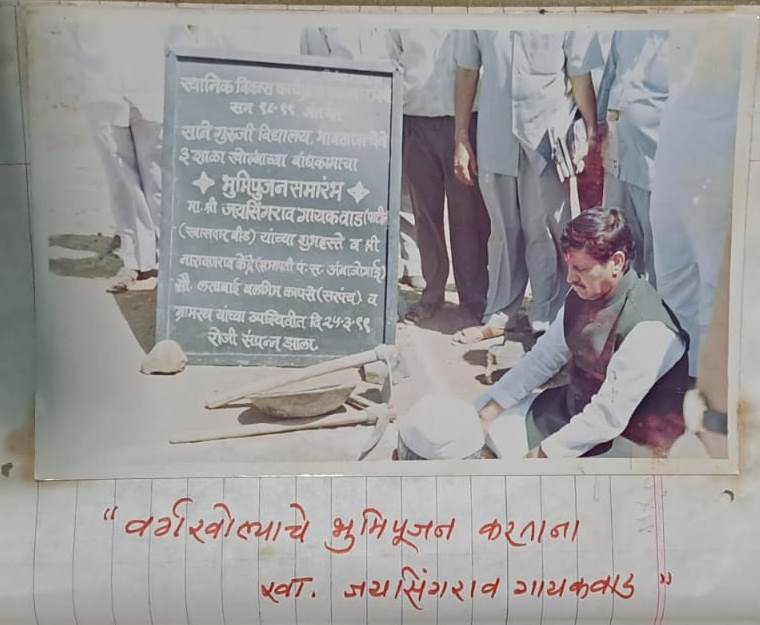 स्थानिक विकास
सन ९८-९९
साने गुरुजी विद्यालय,
३ शाळा खोल्याच्या बांधकामाचा
भुमिपुजन समारंभ
मा.श्री जयसिंगराव गायकवाड
(खासदार बीड) यांच्या शुभहस्ते व श्री
नारायणराव केंद्रे (सभापती पं.स. अंबाजोगाई)
सौ. लताबाई बलभिम काफसे (सरपंच) व
ग्रामस्थ यांच्या उपस्थितीत दि २५.३.९९
रोजी संपन्न झाला.
“वर्गखोल्याचे भुमिपूजन करताना
खा. जयसिंगराव गायकवाड”